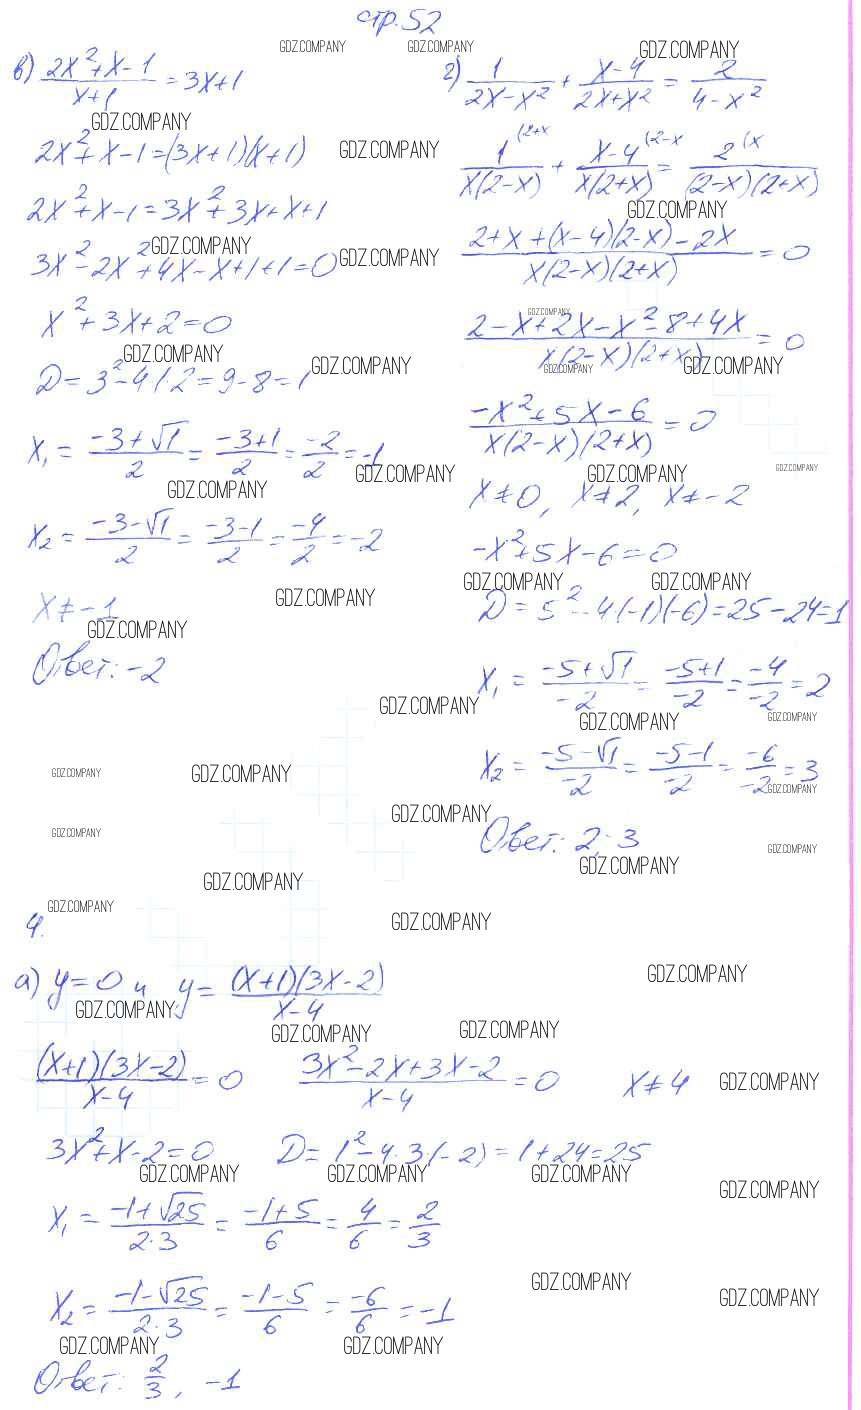 стр. 52
в) (2x²+x-1)/(x+1) = 3x+1
2x²+x-1=(3x+1)(x+1)
2x²+x-1=3x²+3x+x+1
3x²-2x²+4x-x+1+1=0
x²+3x+2=0
D=3²-4·1·2=9-8=1
x₁ = (-3+√1)/2 = (-3+1)/2 = -2/2 = -1
x₂ = (-3-√1)/2 = (-3-1)/2 = -4/2 = -2
x≠-1
Ответ: -2
г) 1/(2x-x²) + (x-4)/(2x+x²) = 2/(4-x²)
1^(2+x/(x(2-x)) + x-4^(2-x/(x(2+x)) = 2^(x/((2-x)(2+x))
(2+x+(x-4)(2-x)-2x)/(x(2-x)(2+x)) = 0
(2-x+2x-x²-8+4x)/(x(2-x)(2+x)) = 0
(-x²+5x-6)/(x(2-x)(2+x)) = 0
x≠0, x≠2, x≠-2
-x²+5x-6=0
D=5²-4(-1)(-6)=25-24=1
x₁ = (-5+√1)/-2 = (-5+1)/-2 = -4/-2 = 2
x₂ = (-5-√1)/-2 = (-5-1)/-2 = -6/-2 = 3
Ответ: 2; 3
4.
а) y=0 и y = ((x+1)(3x-2))/(x-4);
((x+1)(3x-2))/(x-4) = 0 (3x²-2x+3x-2)/(x-4) = 0 x≠4
3x²+x-2=0 D=1²-4·3·(-2)=1+24=25
x₁ = (-1+√25)/(2·3) = (-1+5)/6 = 4/6 = 2/3
x₂ = (-1-√25)/(2·3) = (-1-5)/6 = -6/6 = -1
Ответ: 2/3, -1
GDZ.COMPANY